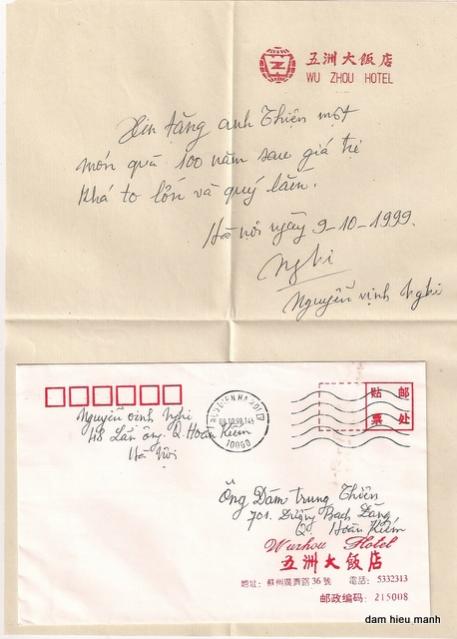 五洲大飯店
WU ZHOU HOTEL
Xin tặng anh Thiện một
món quà 100 năm sau giá trị
khá to lớn và quý lắm.
Hà nội ngày 9-10-1999.
Nghi
Nguyễn vịnh Nghi
Nguyễn vịnh Nghi
48 Lãn Ông. Q. Hoàn Kiếm
Hà Nội
10060
贴 邮
票 处
Ông Đàm Trung Thiện
701. Đường Bạch Đằng
Q. Hoàn Kiếm
Wuzhou Hotel
五洲大飯店
地址: 蘇州廣濟路36號 電話: 5332313
邮政编码: 215008
dam hieu manh